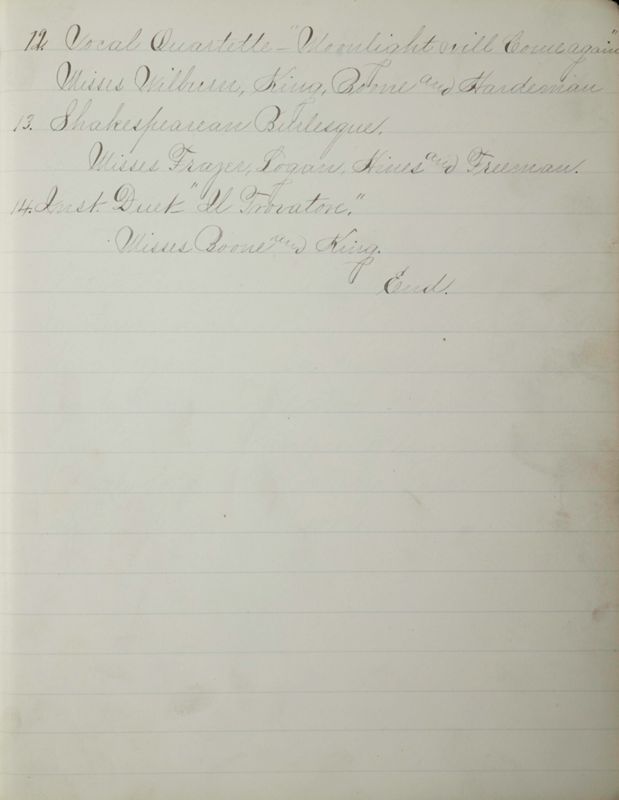 12. Vocal Quartette – "Moonlight will Come again"
Misses Wilburn, King, Boone and Hardeman
13. Shakespearean Burlesque.
Misses Frazer, Logan, Hines and Freeman.
14. Inst. Duet – "Il Trovatore."
Misses Boone and King.
End.